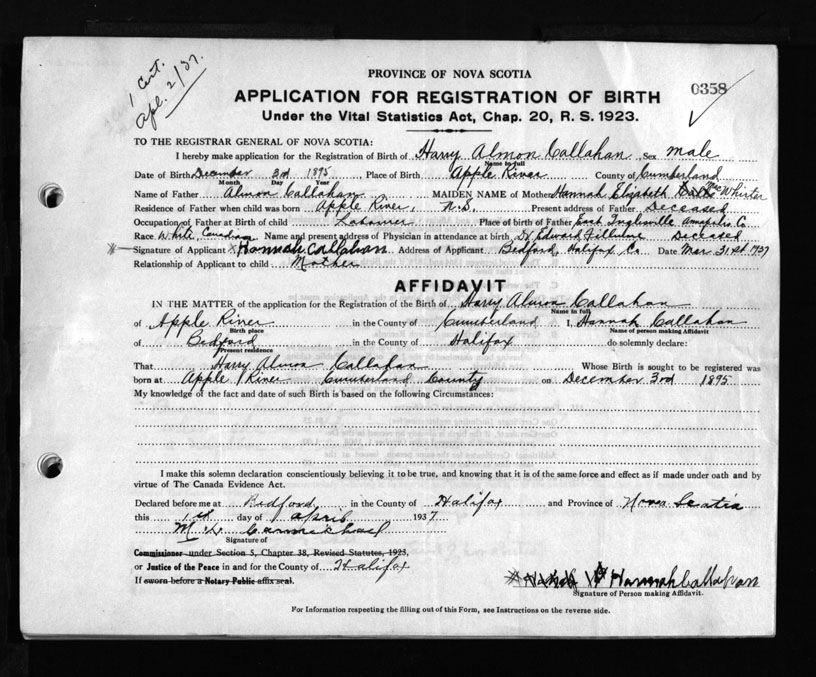 1 Cert.
Apl. 2/37.
PROVINCE OF NOVA SCOTIA
0358
APPLICATION FOR REGISTRATION OF BIRTH
Under the Vital Statistics Act, Chap. 20, R. S. 1923.
TO THE REGISTRAR GENERAL OF NOVA SCOTIA:
I hereby make application for the Registration of Birth of Harry Almon Callahan Sex male
Name in full
Date of Birth December 3rd 1895 Place of Birth Apple River County of Cumberland
Month Day Year
Name of Father Almon Callahan MAIDEN NAME of Mother Hannah Elizabeth McWhirter
Residence of Father when child was born Apple River, N.S. Present address of Father Deceased
Occupation of Father at Birth of child Labourer Place of birth of Father East Inglisville Annapolis Co.
Race White, Canadian Name and present address of Physician in attendance at birth Dr Edward Deceased
Signature of Applicant X Hannah Callahan Address of Applicant Bedford, Halifax Co Date Mar 31st 1937
Relationship of Applicant to child Mother
AFFIDAVIT
IN THE MATTER of the application for the Registration of the Birth of Harry Almon Callahan
Name in full
of Apple River in the County of Cumberland I, Hannah Callahan
Birth place Name of person making Affidavit
of Bedford in the County of Halifax do solemnly declare:
Present residence
That Harry Almon Callahan Whose Birth is sought to be registered was
born at Apple River Cumberland County on December 3rd 1895
My knowledge of the fact and date of such Birth is based on the following Circumstances:
I make this solemn declaration conscientiously believing it to be true, and knowing that it is of the same force and effect as if made under oath and by
virtue of The Canada Evidence Act.
Declared before me at Bedford in the County of Halifax and Province of Nova Scotia
this 1st day of April 1937
M. Carmichael
Signature of
Commissioner under Section 5, Chapter 38, Revised Statutes, 1923,
or Justice of the Peace in and for the County of Halifax
If sworn before a Notary Public affix seal.
Hannah Callahan
Signature of Person making Affidavit.
For Information respecting the filling out of this Form, see Instructions on the reverse side.